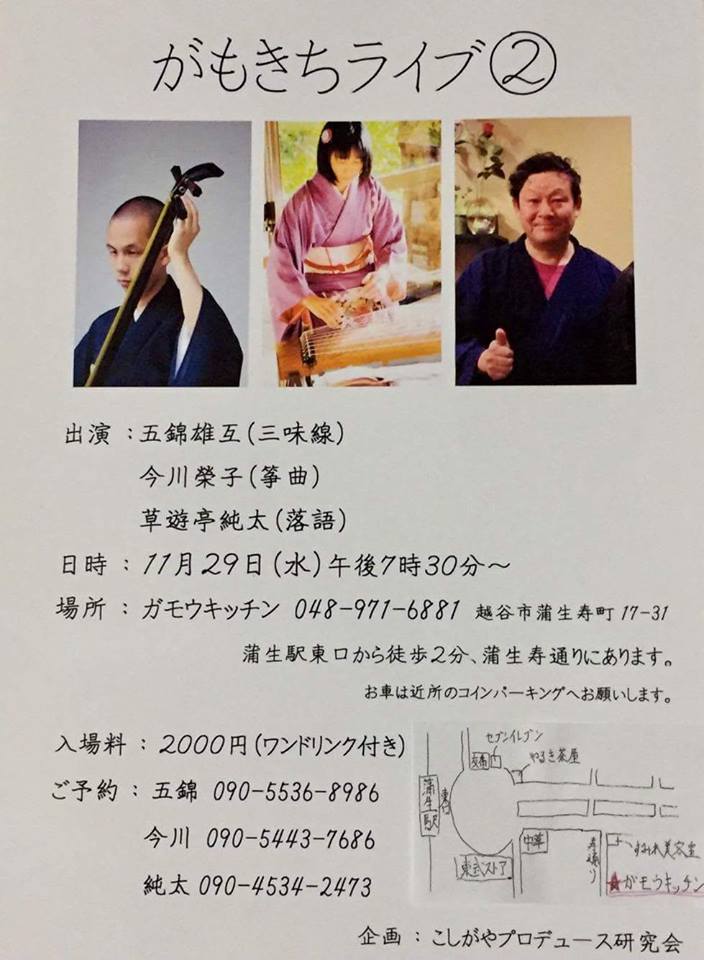 がもきちライブ②
出演：五錦雄互(三味線)
今川榮子(箏曲)
草遊亭純太(落語)
日時：11月29日(水)午後7時30分～
場所：ガモウキッチン 048-971-6881 越谷市蒲生寿町17-31
蒲生駅東口から徒歩2分、蒲生寿通りにあります。
お車は近所のコインパーキングへお願いします。
入場料：2000円(ワンドリンク付き)
ご予約：五錦 090-5536-8986
今川 090-5443-7686
純太 090-4534-2473
セブンイレブン
交番
やるき茶屋
蒲生駅
東口
中華
寿通り
東武ストア
すみれ美容室
★ガモウキッチン
企画：こしがやプロデュース研究会